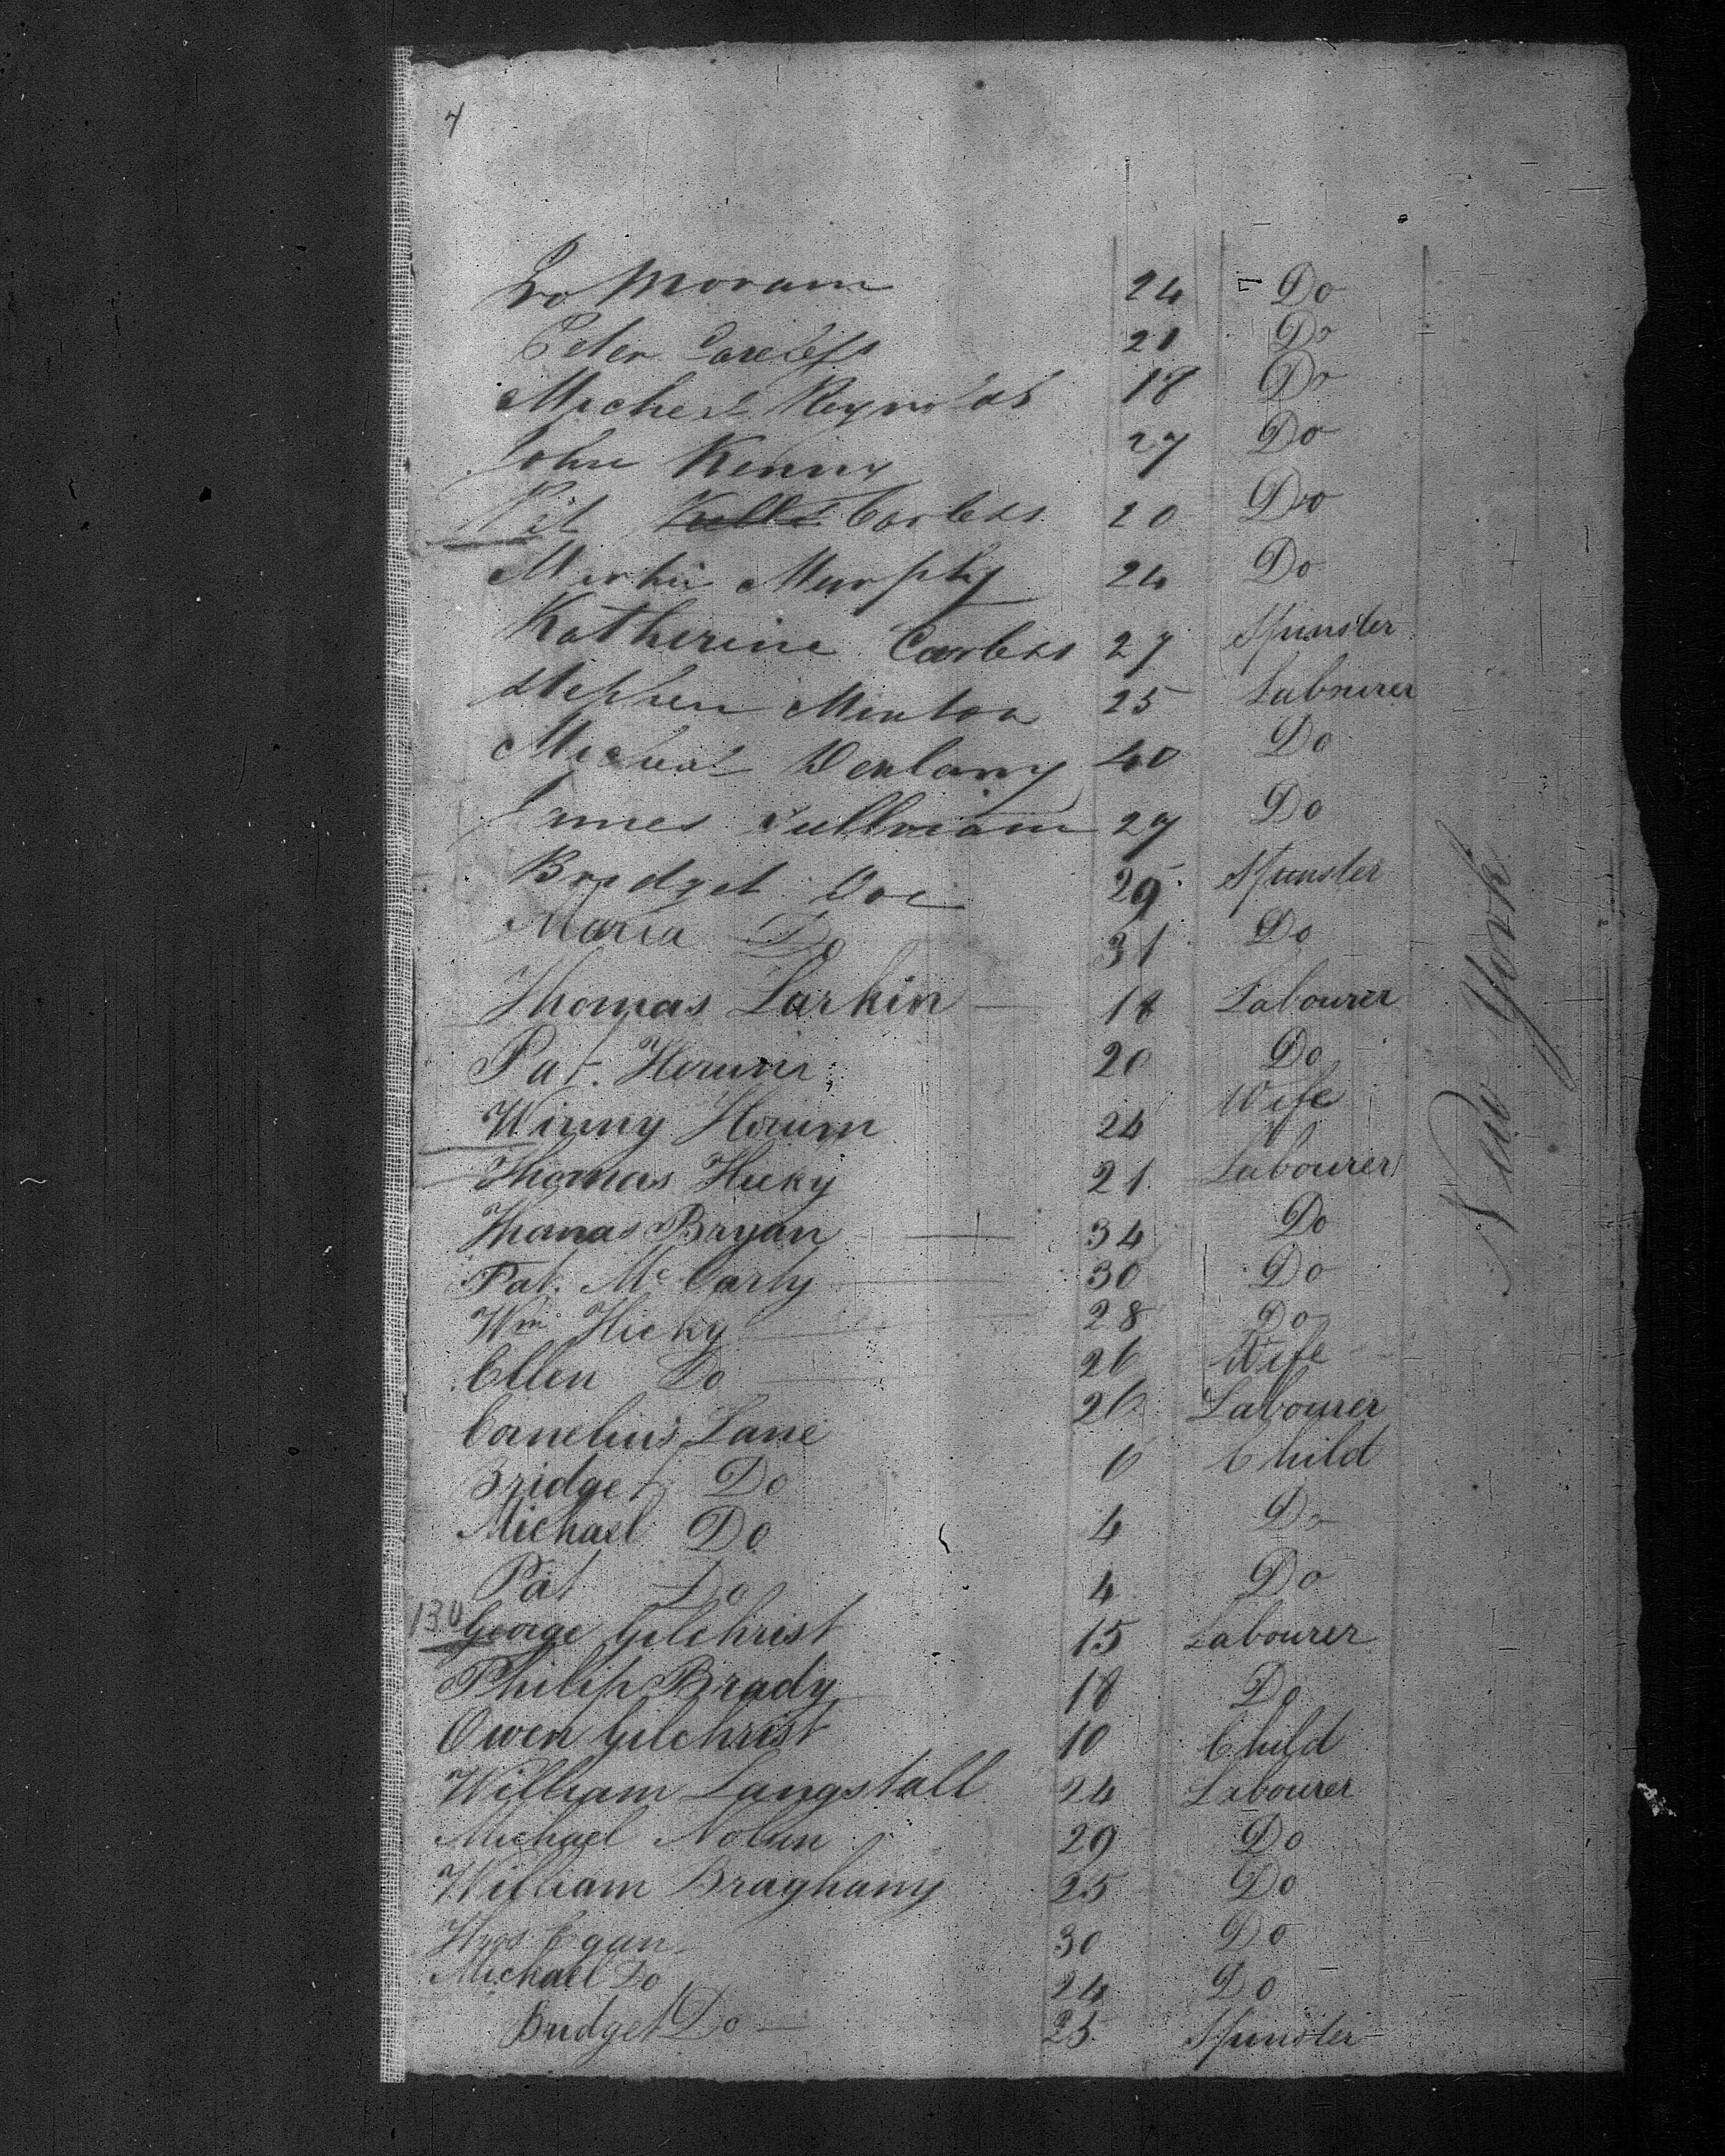 4
Moram 24 Do
Peter 21 Do
Micheal Reynolds 18 Do
John Kenny 27 Do
Pat Carless 20 Do
Murphy 24 Do
Katherine Carless 27 Spinster
Stephen Minton 25 Labourer
Micheal 40 Do
James Sullviam 27 Do
Bridget Coe 29 Spinster
Maria Do 31 Do
Thomas Larkin 18 Labourer
Pat. 20 Do
Winny 24 Wife
Thomas Hicky 21 Labourer
Thomas Bryan 34 Do
Pat. McCarty 30 Do
Wm Hicky 28 Do
Ellen Do 26 Wife
Cornelius Lane 26 Labourer
Bridget Do 6 Child
Michael Do 4 Do
Pat Do 4 Do
130 George Gilchrist 15 Labourer
Philip Brady 18 Do
Owen Gilchrist 10 Child
William Langstall 24 Labourer
Michael Nolan 29 Do
William Braghany 25 Do
Thos Egan 30 Do
Michael Do 24 Do
Bridget Do 25 Spinster
New York